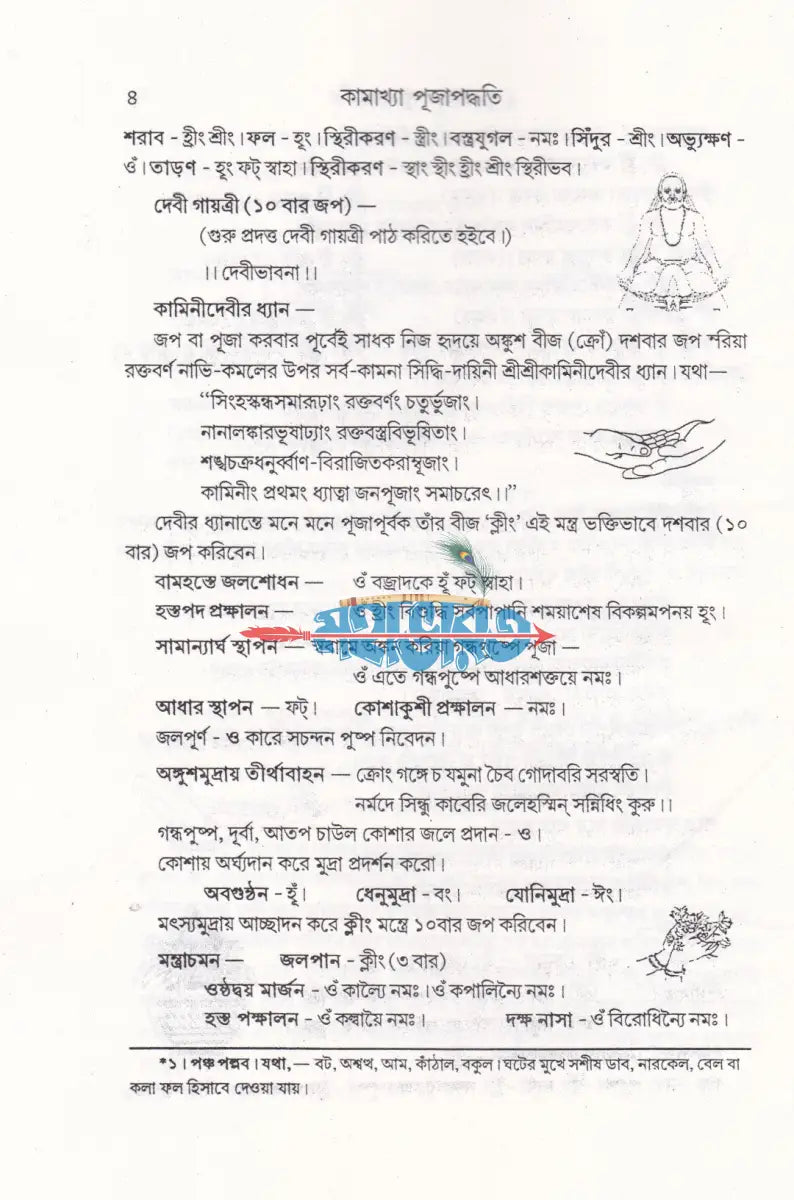 ৪ কামাখ্যা পূজাপদ্ধতি
শরাব - হ্রীং শ্রীং। ফল - হূং। স্থিরীকরণ - স্ত্রীং। বস্ত্রযুগল - নমঃ। সিঁদুর - শ্রীং। অভ্যুক্ষণ -
ওঁ। তাড়ণ - হূং ফট্ স্বাহা। স্থিরীকরণ - স্থাং স্থীং হ্রীং শ্রীং স্থিরীভব।
দেবী গায়ত্রী (১০ বার জপ) —
(গুরু প্রদত্ত দেবী গায়ত্রী পাঠ করিতে হইবে।)
।। দেবীভাবনা ।।
কামিনীদেবীর ধ্যান —
জপ বা পূজা করবার পূর্বেই সাধক নিজ হৃদয়ে অঙ্কুশ বীজ (ক্রোঁ) দশবার জপ রিয়া
রক্তবর্ণ নাভি-কমলের উপর সর্ব-কামনা সিদ্ধি-দায়িনী শ্রীশ্রীকামিনীদেবীর ধ্যান। যথা—
“সিংহস্কন্ধসমারূঢ়াং রক্তবর্ণং চতুর্ভুজাং।
নানালঙ্কারভূষাঢ্যাং রক্তবস্ত্রবিভূষিতাং।
শঙ্খচক্রধনুর্ব্বাণ-বিরাজিতকরাম্বুজাং।
কামিনীং প্রথমং ধ্যাত্বা জনপূজাং সমাচরেৎ।।”
দেবীর ধ্যানান্তে মনে মনে পূজাপূর্বক তাঁর বীজ ‘ক্লীং’ এই মন্ত্র ভক্তিভাবে দশবার (১০
বার) জপ করিবেন।
বামহস্তে জলশোধন — ওঁ বজ্রাদকে হূঁ ফট্ স্বাহা।
হস্তপদ প্রক্ষালন — ওঁ হ্রীং বিশুদ্ধি সর্বপাপানি শময়াশেষ বিকল্পমপনয় হূং।
সামান্যার্ঘ স্থাপন — স্ববামে অঙ্কন করিয়া গন্ধপুষ্পে পূজা —
ওঁ এতে গন্ধপুষ্পে আধারশক্তয়ে নমঃ।
আধার স্থাপন — ফট্। কোশাকুশী প্রক্ষালন — নমঃ।
জলপূর্ণ - ওঁ কারে সচন্দন পুষ্প নিবেদন।
অঙ্গুশমুদ্রায় তীর্থাবাহন — ক্রোং গঙ্গে চ যমুনা চৈব গোদাবরি সরস্বতি।
নর্মদে সিন্ধু কাবেরি জলেহস্মিন্ সন্নিধিং কুরু।।
গন্ধপুষ্প, দূর্বা, আতপ চাউল কোশার জলে প্রদান - ওঁ।
কোশায় অর্ঘ্যদান করে মুদ্রা প্রদর্শন করো।
অবগুণ্ঠন - হূঁ। ধেনুমুদ্রা - বং। যোনিমুদ্রা - ঈং।
মৎস্যমুদ্রায় আচ্ছাদন করে ক্লীং মন্ত্রে ১০বার জপ করিবেন।
মন্ত্রাচমন — জলপান - ক্লীং (৩ বার)
ওষ্ঠদ্বয় মার্জন - ওঁ কাল্যৈ নমঃ। ওঁ কপালিন্যৈ নমঃ।
হস্ত পক্ষালন - ওঁ কল্বায়ৈ নমঃ। দক্ষ নাসা - ওঁ বিরোধিন্যৈ নমঃ।
*১। পঞ্চপল্লব। যথা,— বট, অশ্বত্থ, আম, কাঁঠাল, বকুল। ঘটের মুখে সশীষ ডাব, নারকেল, বেল বা
কলা ফল হিসাবে দেওয়া যায়।